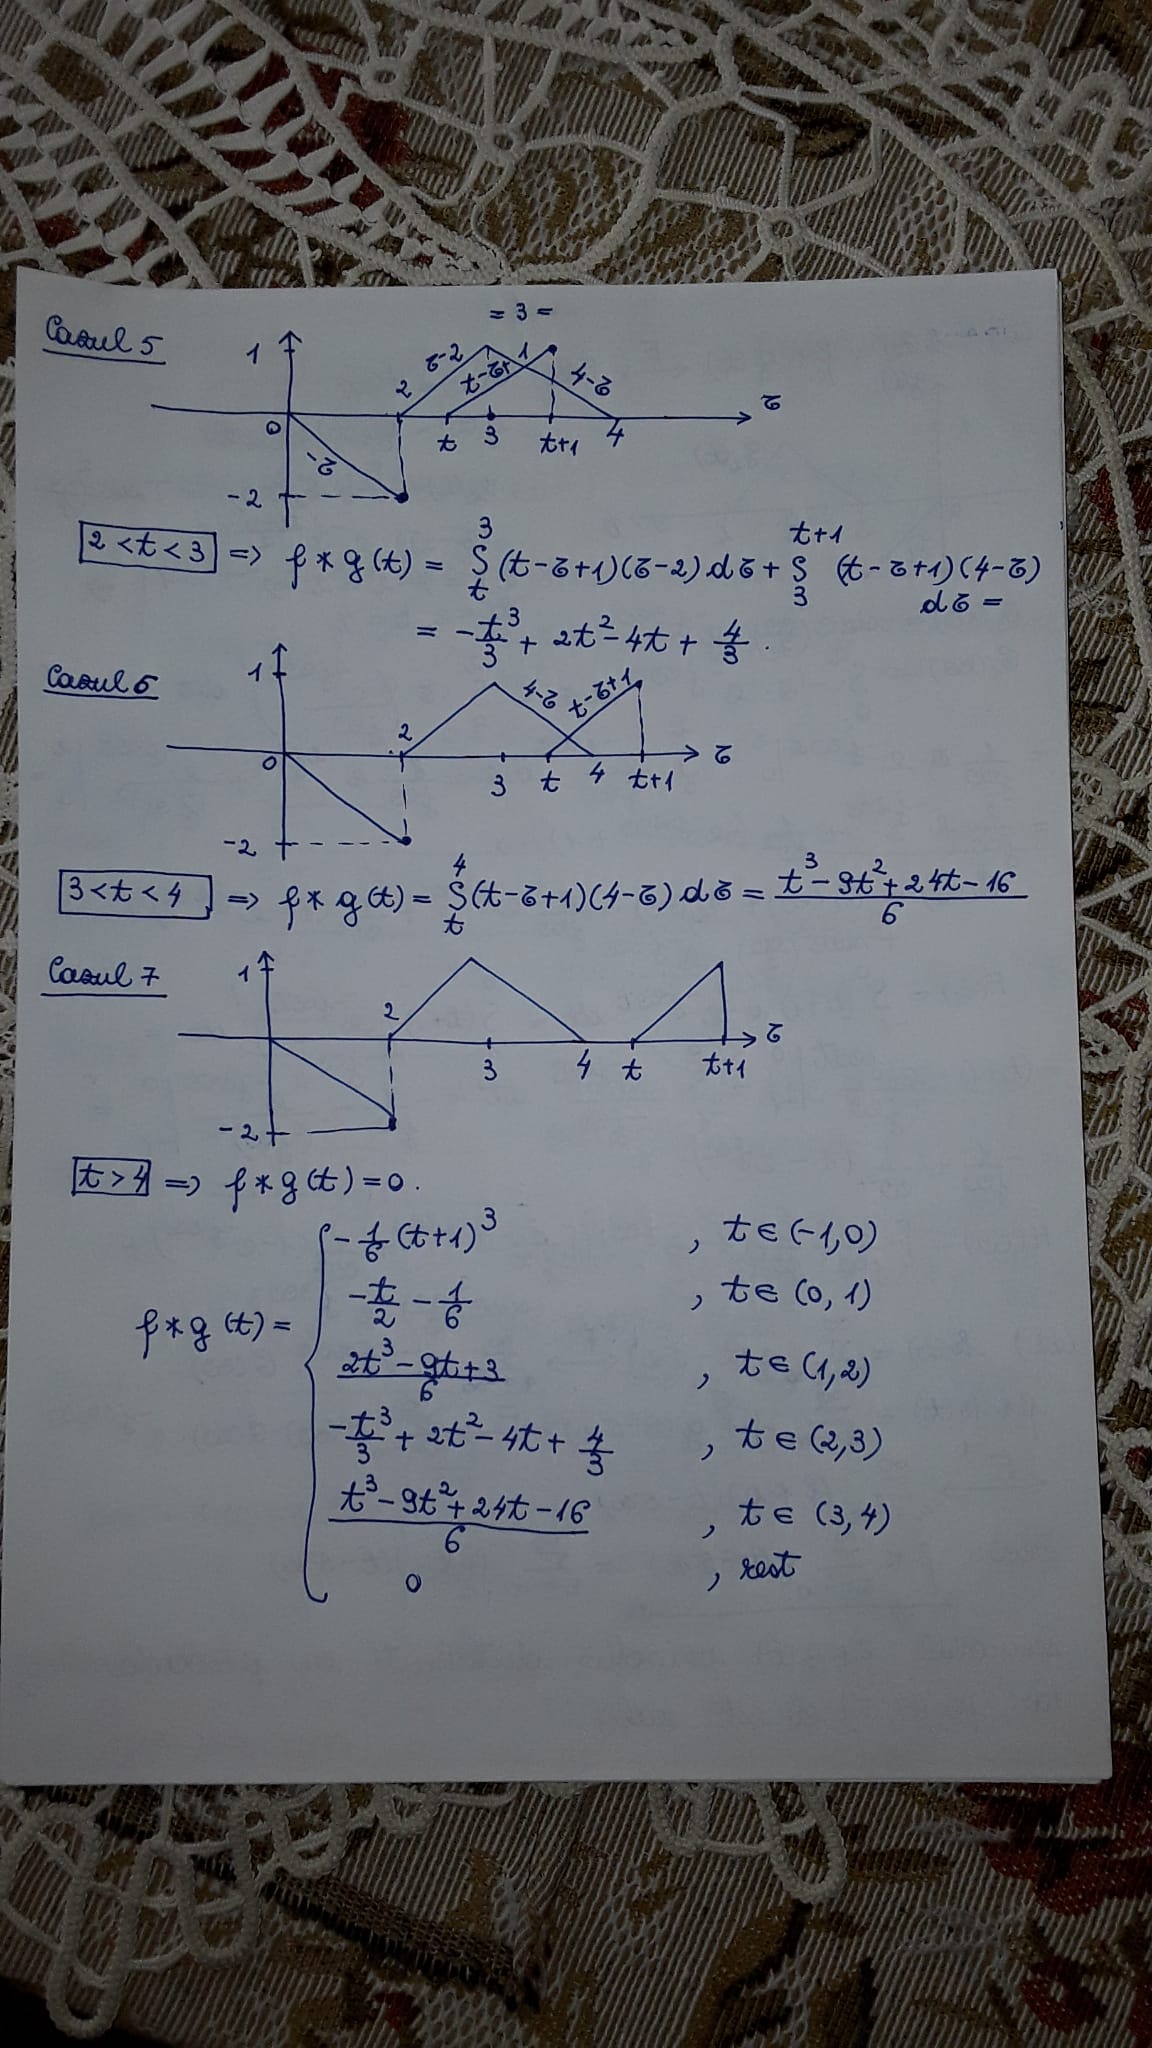 = 3 =
Cazul 5
1
τ-2
t-τ+1
4-τ
2
τ
0
t
3
t+1
4
-τ
-2
2<t<3 => f*g(t) = ∫_t^3 (t-τ+1)(τ-2)dτ + ∫_3^{t+1} (t-τ+1)(4-τ)
dτ =
= -t³/3 + 2t² - 4t + 4/3.
Cazul 6
1
4-τ
t-τ+1
2
τ
0
3
t
4
t+1
-2
3<t<4 => f*g(t) = ∫_t^4 (t-τ+1)(4-τ)dτ = (t³-9t²+24t-16)/6
Cazul 7
1
2
τ
3
4
t
t+1
-2
t>4 => f*g(t)=0.
-1/6 (t+1)³ , t∈(-1,0)
-t/2 - 1/6 , t∈(0,1)
f*g(t) =
(2t³-9t+3)/6 , t∈(1,2)
-t³/3 + 2t² - 4t + 4/3 , t∈(2,3)
(t³-9t²+24t-16)/6 , t∈(3,4)
0 , rest